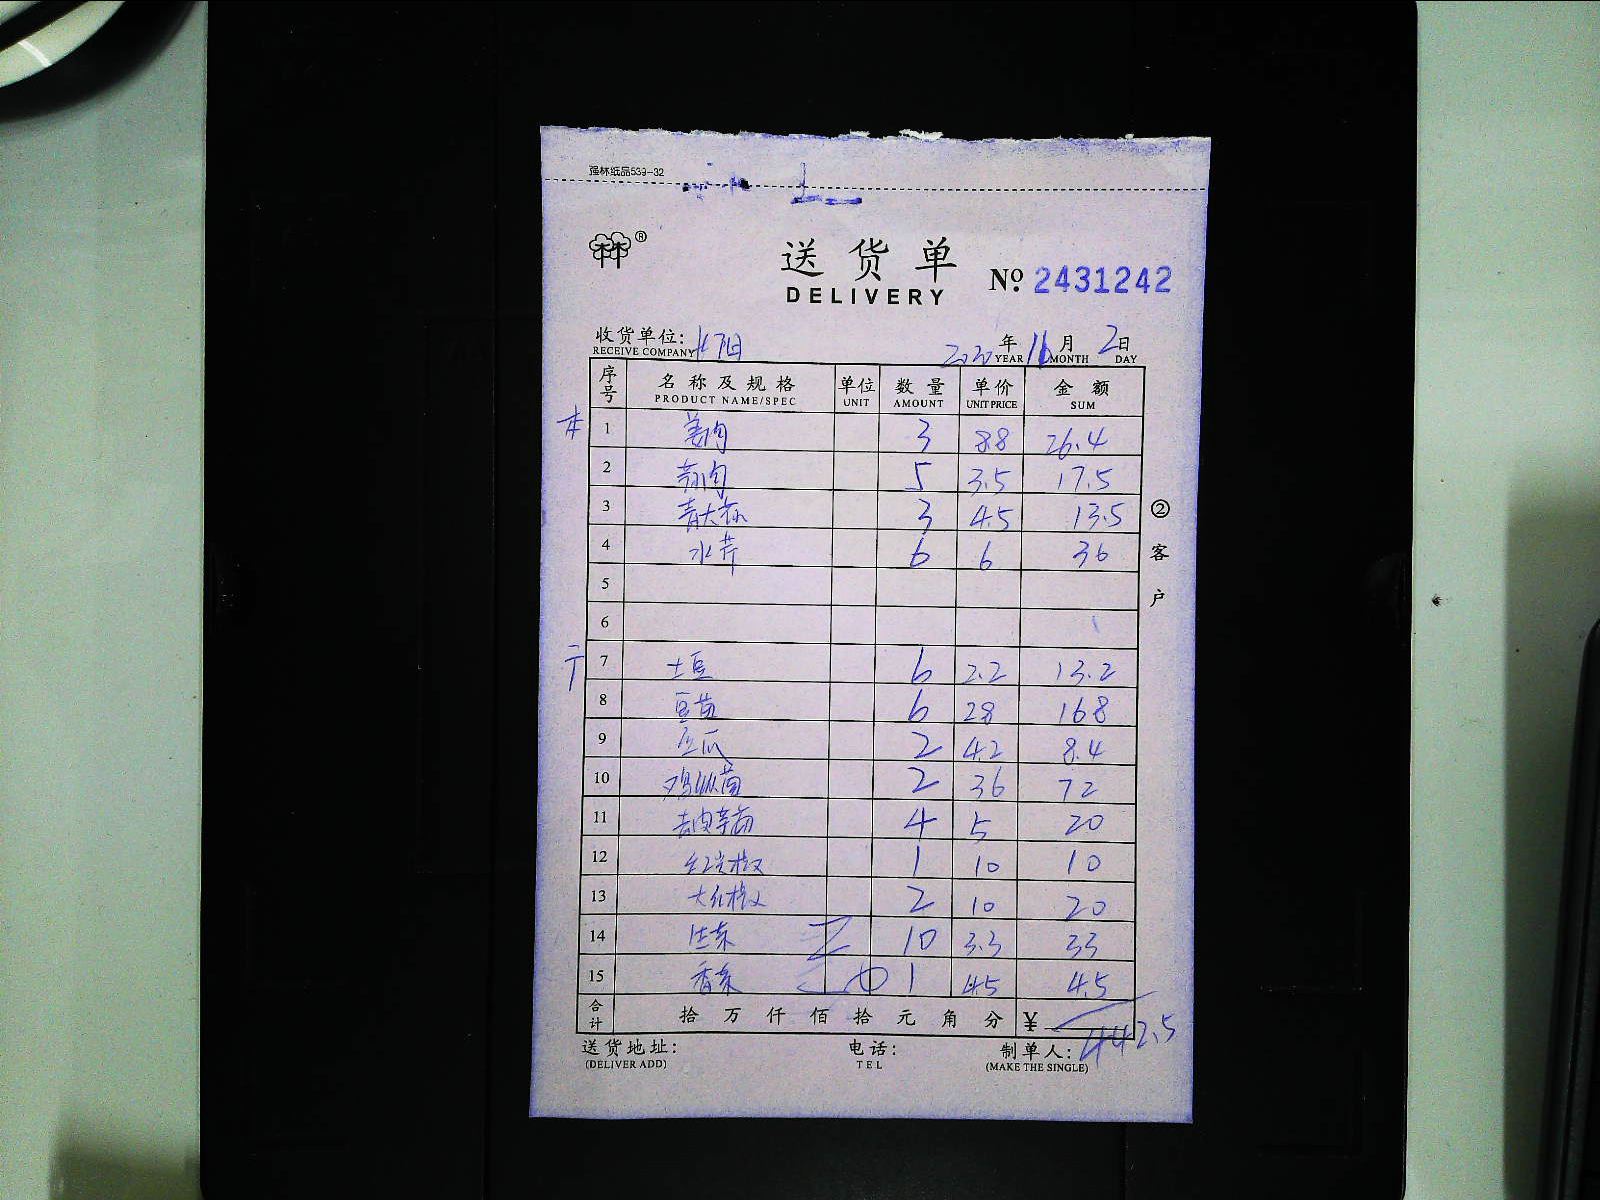 强林纸品539-32
送货单
DELIVERY
№ 2431242
收货单位:
RECEIVE COMPANY
2020 年 月 2 日
YEAR MONTH DAY
序号 名称及规格 单位 数量 单价 金额
PRODUCT NAME/SPEC UNIT AMOUNT UNIT PRICE SUM
1 姜肉 3 8.8 26.4
2 蒜肉 5 3.5 17.5
3 青大蒜 3 4.5 13.5
4 水芹 6 6 36
5
6
7 土豆 6 2.2 13.2
8 豆苗 6 28 168
9 瓜 2 4.2 8.4
10 鸡枞菌 2 36 72
11 去皮莴 4 5 20
12 红尖椒 1 10 10
13 大红椒 2 10 20
14 生菜 10 3.3 33
15 香菜 1 4.5 4.5
合计 拾 万 仟 佰 拾 元 角 分 ¥ 442.5
送货地址: 电话: 制单人:
(DELIVER ADD) TEL (MAKE THE SINGLE)
②客户